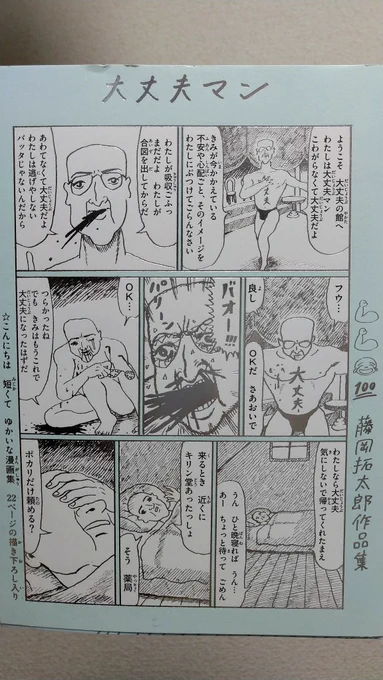 大丈夫マン
ようこそ 大丈夫の館へ
わたしは大丈夫マン
こわがらなくて大丈夫だよ
大丈夫
きみが今かかえている
不安や心配ごと、そのイメージを
わたしにぶつけてごらんなさい
わたしが吸収…ふっ
まだだよ わたしが
合図を出してからだ
あわてなくて大丈夫だよ
わたしは逃げやしない
バッタじゃないんだから
フウ…
良し
OKだ さあおいで
大丈夫
バオー!!!
パリーン
OK…
つらかったね
でも きみはもうこれで
大丈夫になったはずだ
わたしなら大丈夫
気にしないで帰ってくれたまえ
うん ひと晩寝れば うん…
あー ちょっと待って ごめん
来るとき 近くに
キリン堂あったっしょ
そう 薬局
ポカリだけ頼める?
100
藤岡拓太郎作品集
☆こんにちは 短くて ゆかいな漫画集
22ページの描き下ろし入り